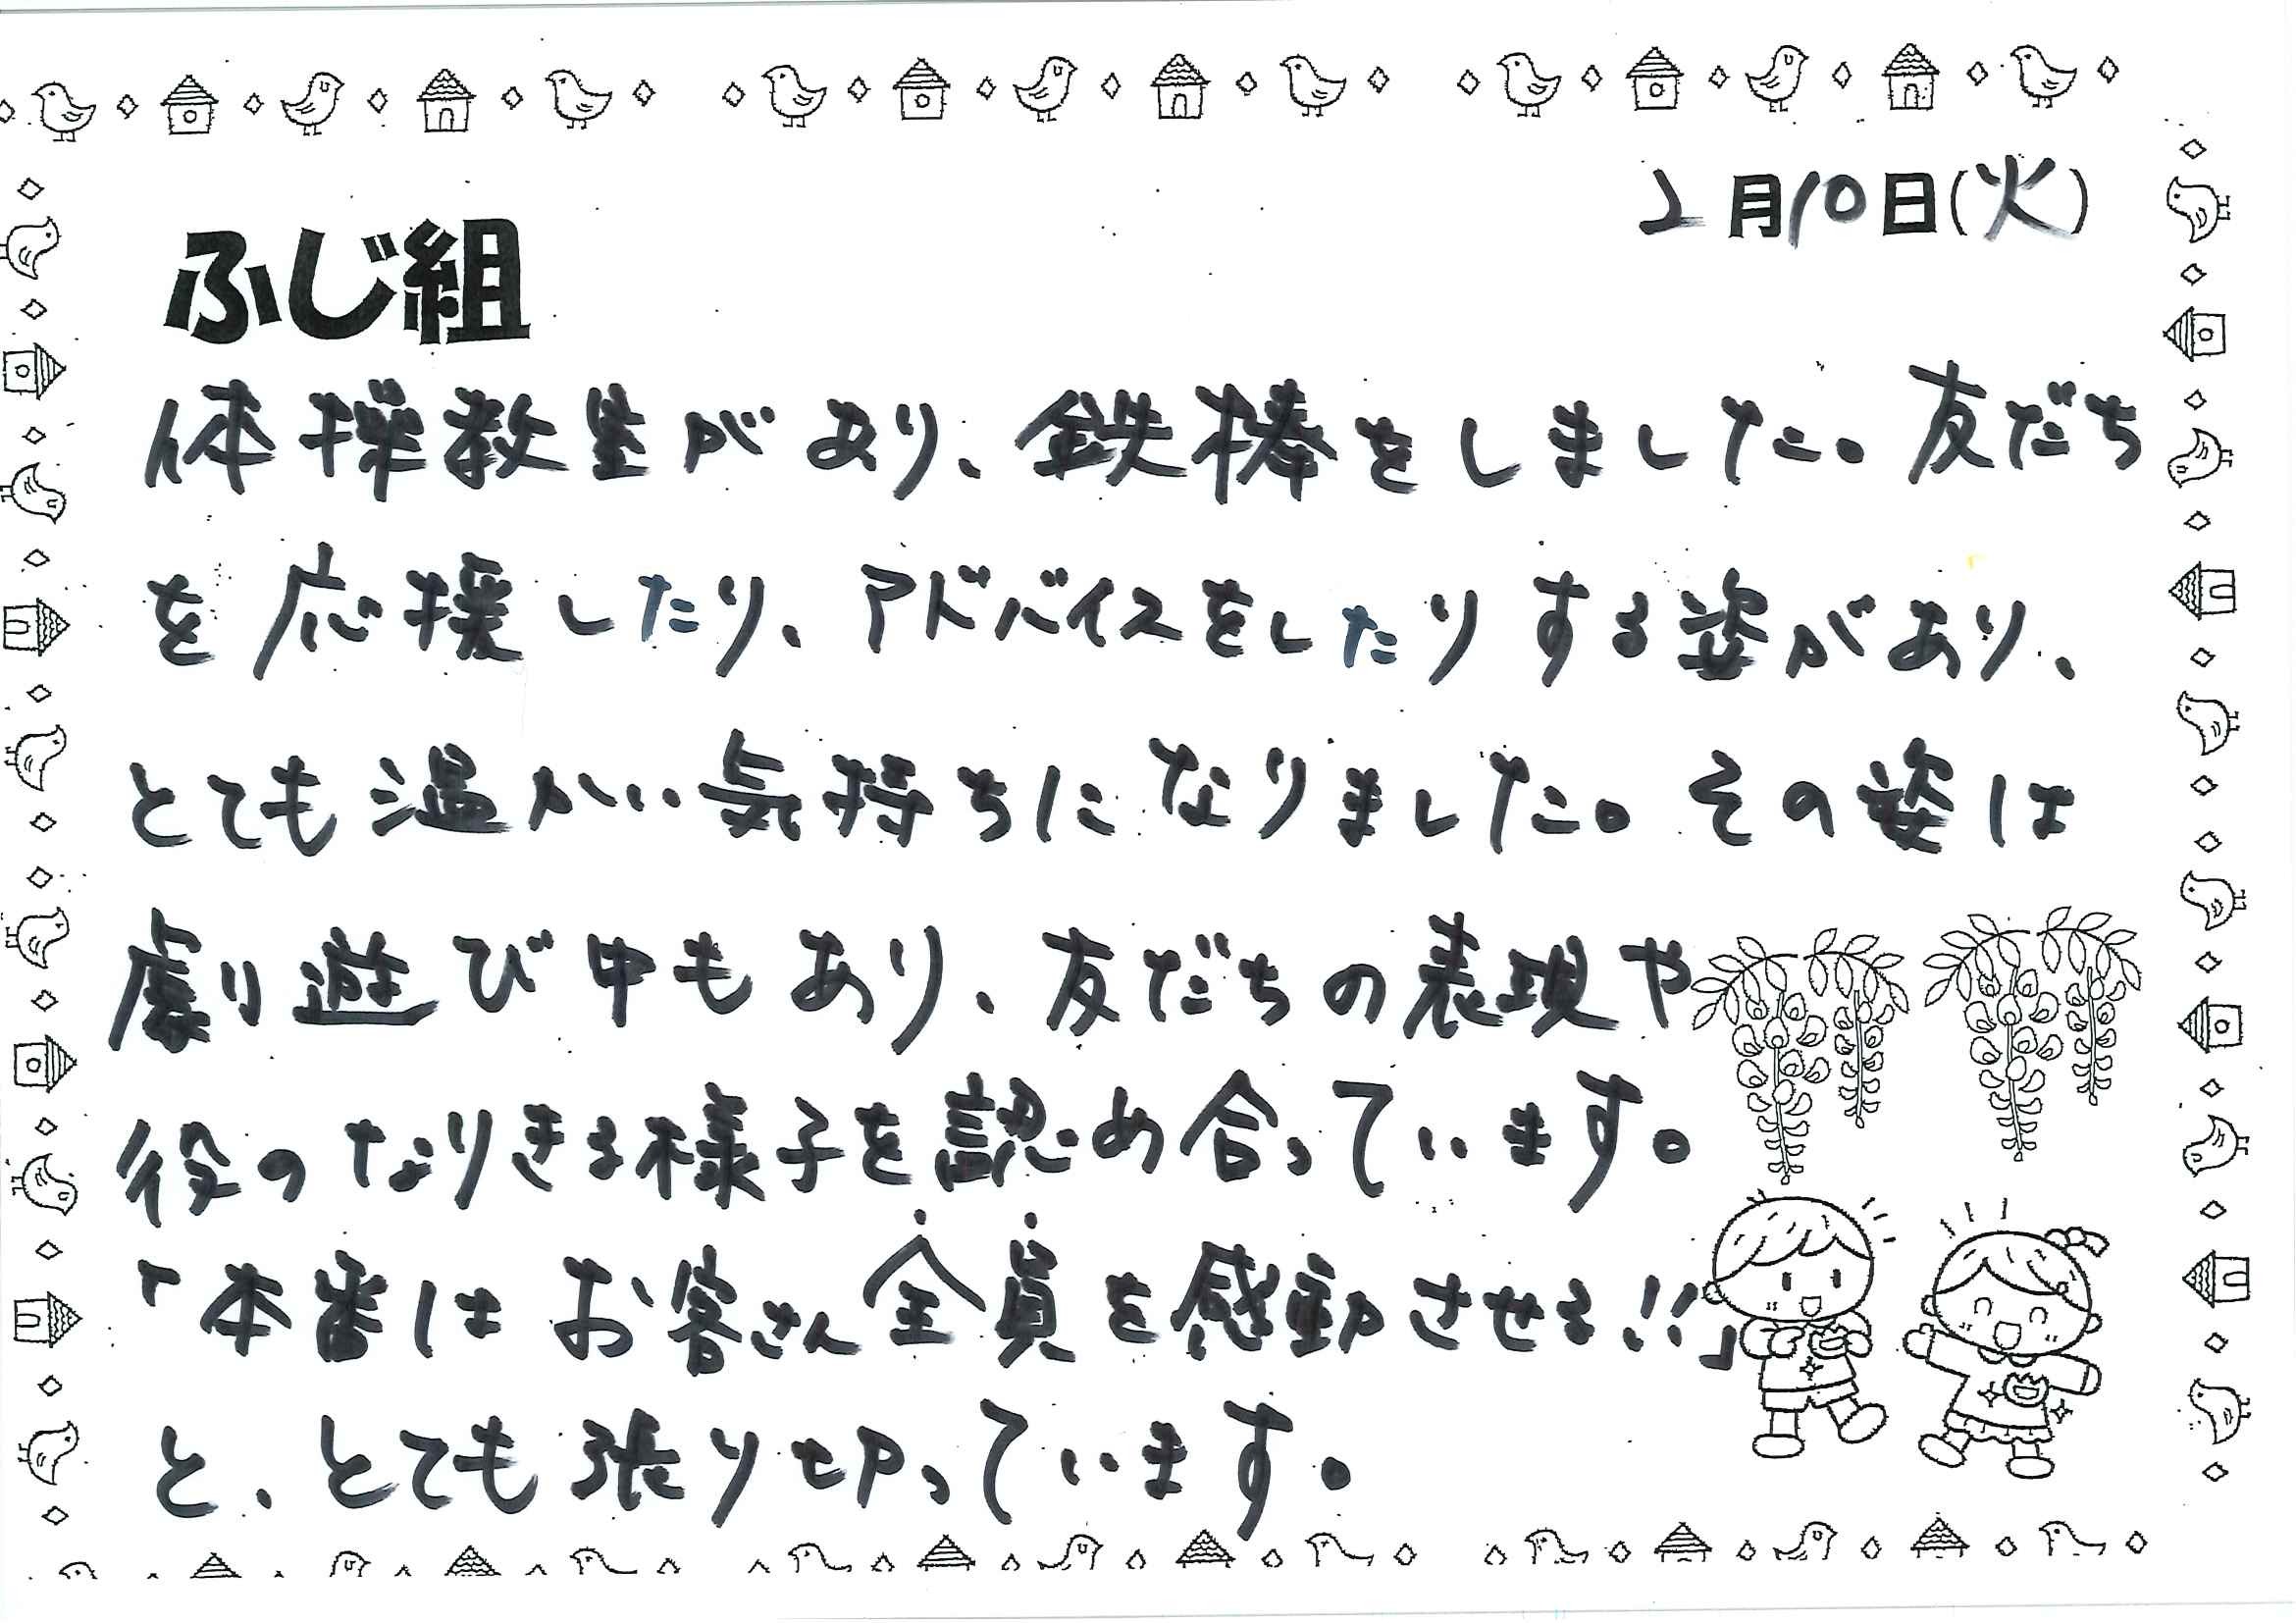 2月10日(火)
ふじ組
体操教室があり、鉄棒をしました。友だち
を応援したり、アドバイスをしたりする姿があり、
とても温かい気持ちになりました。その姿は
劇遊び中もあり、友だちの表現や
役のなりきる様子を認め合っています。
「本番はお客さん全員を感動させる!!」
と、とても張り切っています。